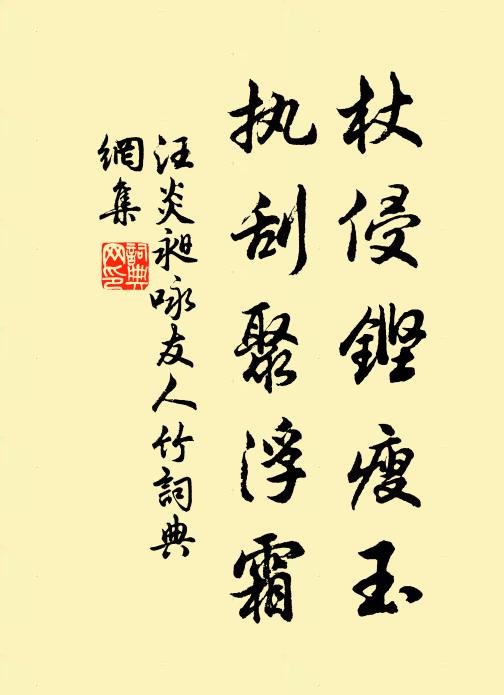 杖侵鏗瘦玉
执刮聚浮霜
汪炎昶咏友人竹詞典
網集
詞典網印